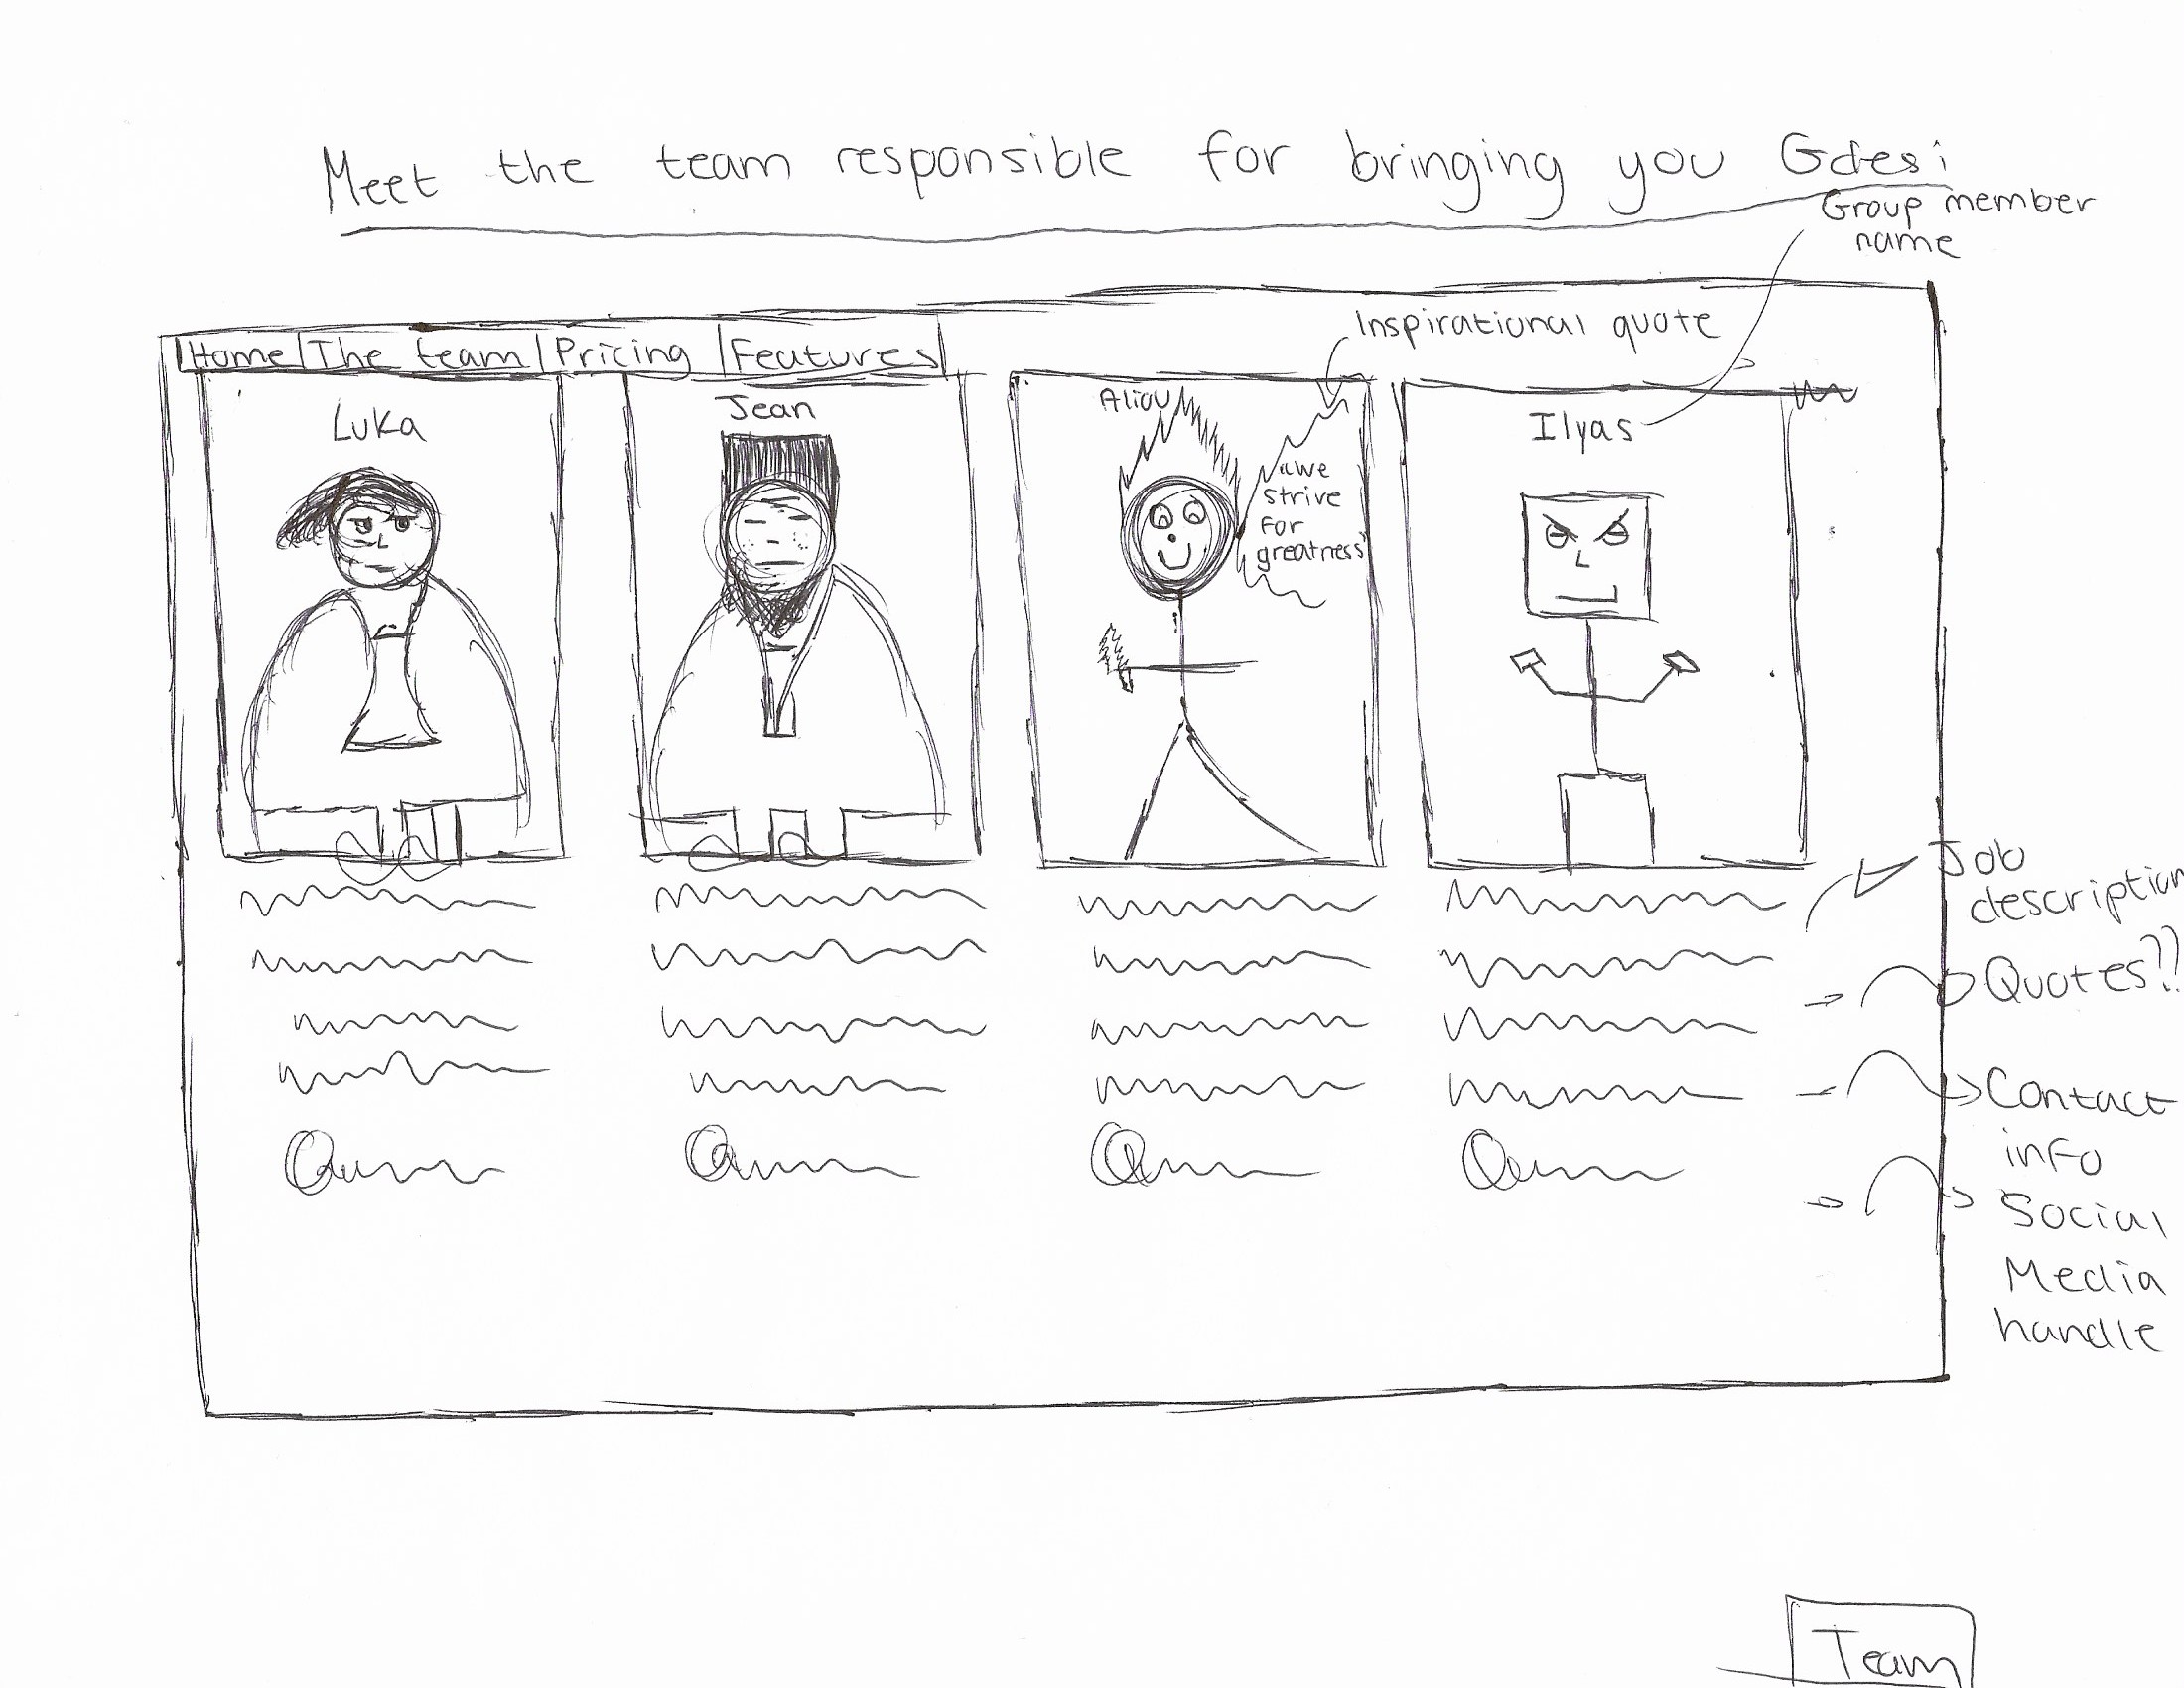 Meet the team responsible for bringing you Gdesi
Group member
name
Inspirational quote
Home The team Pricing Features
Luka
Jean
Aliou
Ilyas
"we
strive
for
greatness"
Job
description
Quotes??
Contact
info
Social
Media
handle
Team